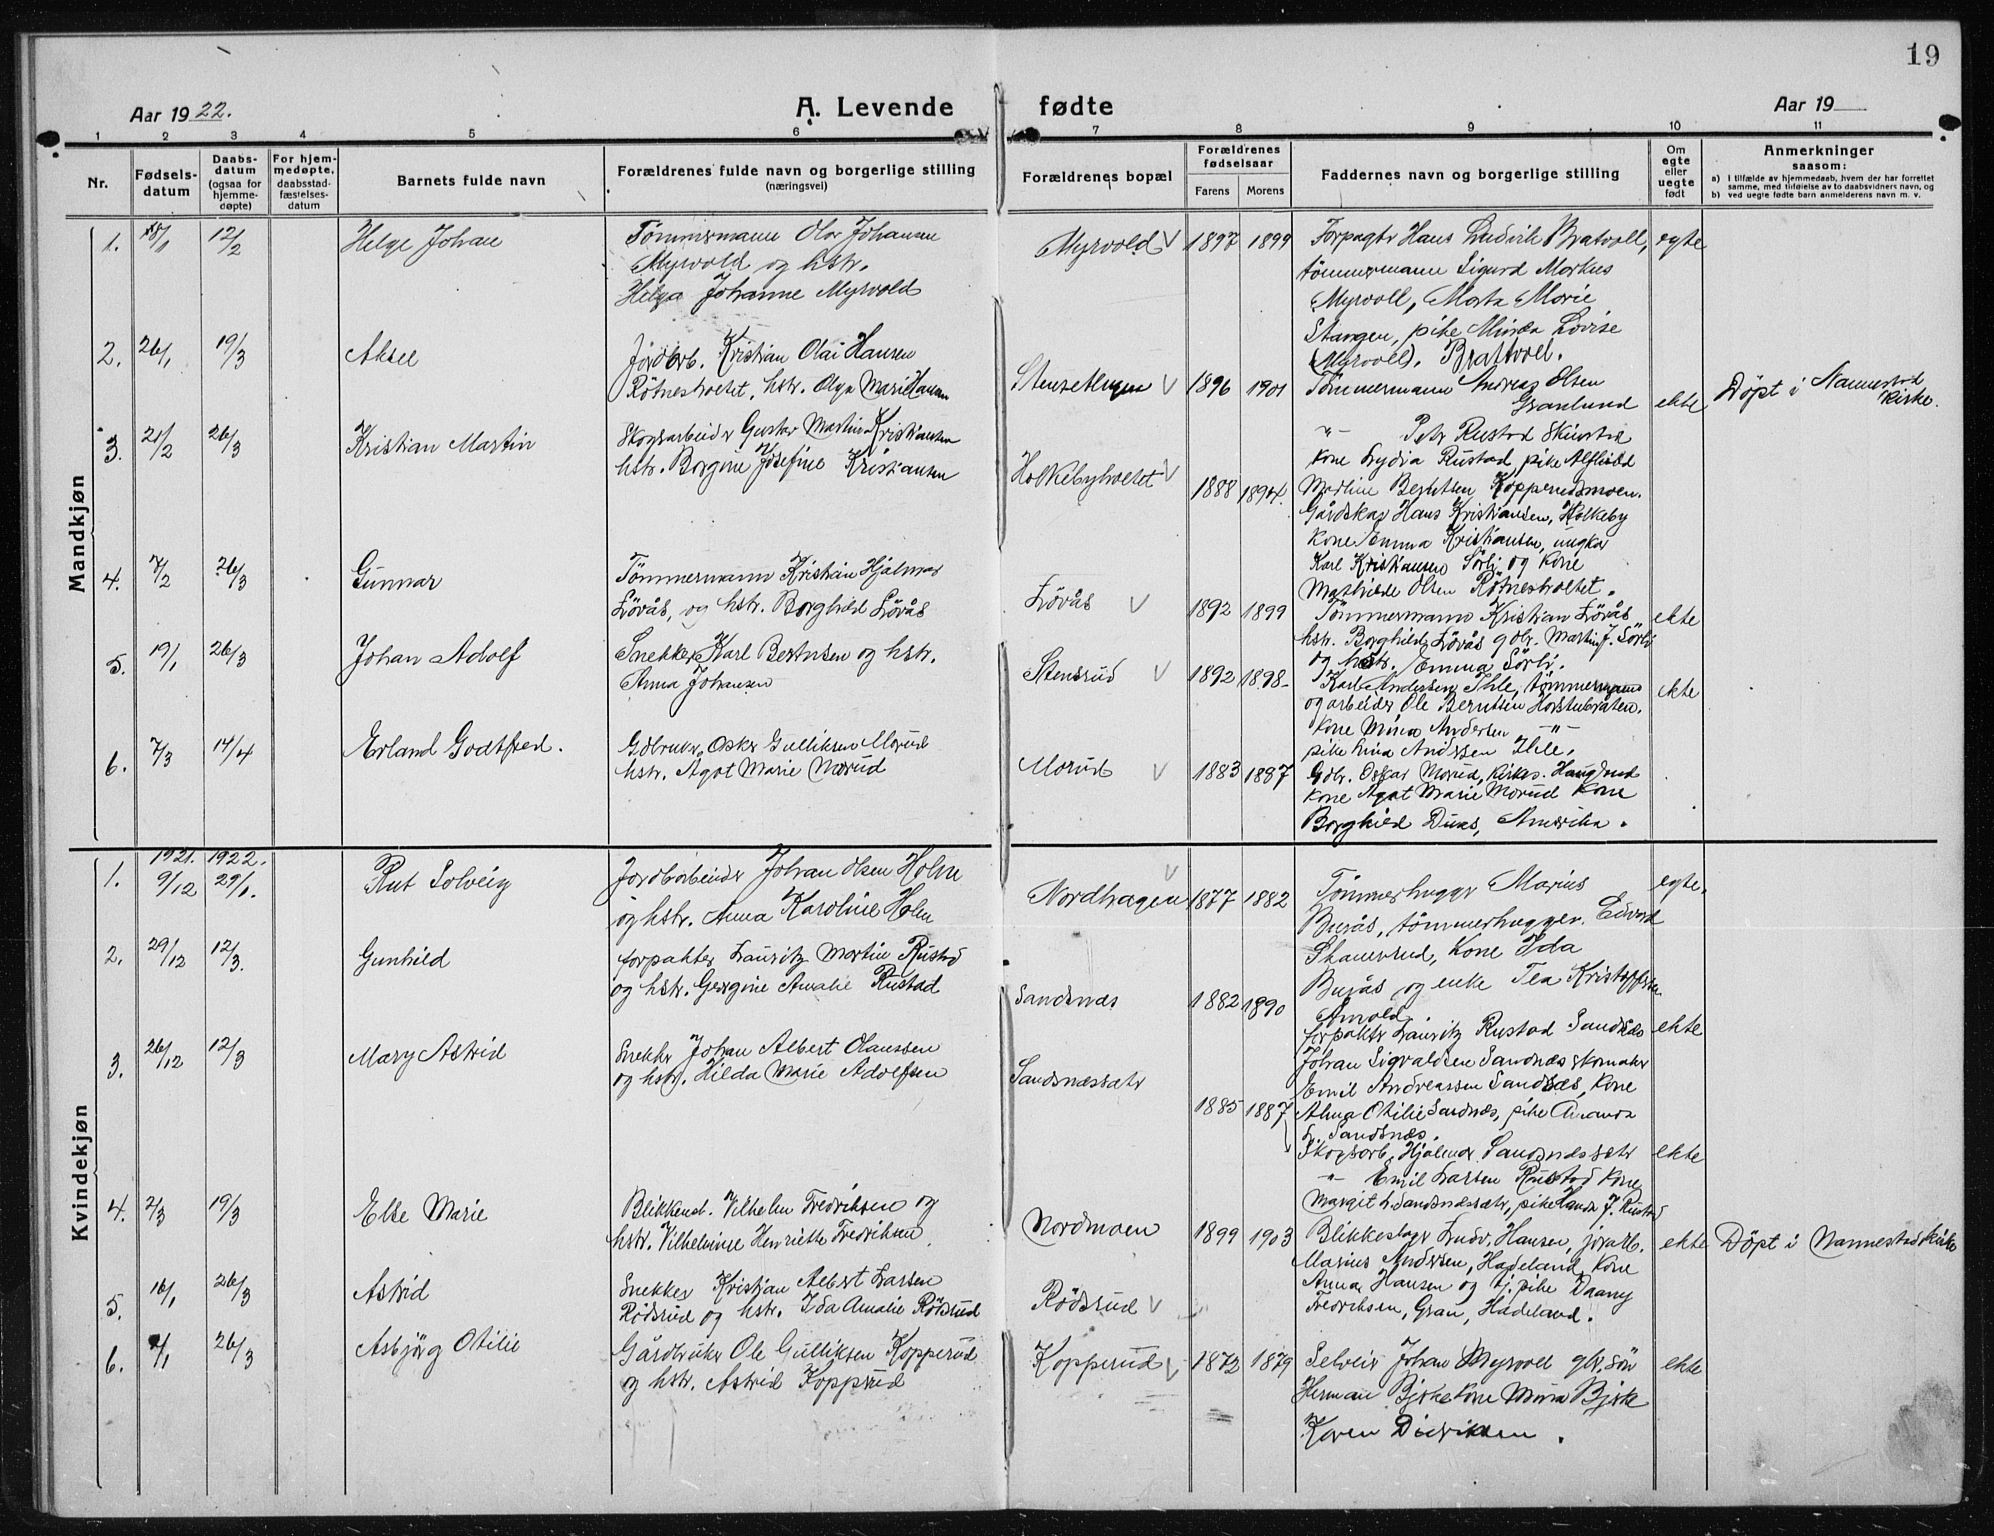 19
Aar 1922.
A. Levende fødte
Aar 19
1 2 3 4 5 6 7 8 9 10 11
Nr.
Fødsels-
datum
Daabs-
datum
(ogsaa for
hjemme-
døpte)
For hjem-
medøpte,
daabsstad-
fæstelses-
datum
Barnets fulde navn
Forældrenes fulde navn og borgerlige stilling
(næringsvei)
Forældrenes bopæl
Forældrenes
fødselsaar
Farens Morens
Faddernes navn og borgerlige stilling
Om
egte
eller
uegte
født
Anmerkninger
saasom:
a) I tilfælde av hjemmedaab, hvem der har forrettet
samme, med tilføielse av to daabsvidners navn, og
b) ved uegte fødte barn anmelderens navn m. v.
Mandkjøn
1. 18/1 12/2 Helge Johan
Tömmermann Olov Johansen
Myrvold og hstr.
Helga Johanne Myrvold
Myrvold V 1897 1899
Forpagtr Hans Ludvik Bratvoll,
tömmermann Sigurd Markus
Myrvoll, Marta Marie
Stangen, pike Minda Lovise
Myrvoll, Brattvoll.
egte
2. 26/1 19/3 Aksel
Jordarb. Kristian Olai Hansen
Rötneshvelet, hstr. Olga Marie Hansen
V 1896 1901
Tömmermann Andreas Olsen
Granlund
-"- Petr Rustad
kone Lydia Rustad, pike Alfhild
Martine Berntsen Kopperudsmoen.
ekte
Döpt i Nannestad
kirke.
3. 21/2 26/3 Kristian Martin
Skogsarbeidr Gustav Martin Kristiansen
hstr. Borgine Josefine Kristiansen
V 1888 1894.
Gårdskar Hans Kristiansen, Holkeby
kone Emma Kristiansen, ungkar
Karl Kristiansen Sörli og kone
Mathilde Olsen
4. 7/2 26/3 Gunnar
Tömmermann Kristian Hjalmar
Lövås, og hstr. Borghild Lövås
Lövås V 1892 1899
Tömmermann Kristian Lövås
hstr. Borghild Lövås gdbr. Martin J. Sörli
og hstr. Emma Sörli.
ekte
5. 19/1 26/3 Johan Adolf
Snekker Karl Berntsen og hstr.
Anna Johansen
Stensrud V 1892 1898-
Karl Andersen Ihle, tömmermann
og arbeider Ole Berntsen
kone Mina Andersen -"-
pike Lina Andersen Ihle.
ekte
6. 7/3 14/4 Erland Godtfred.
Gdbruker Oskar Gulliksen Morud
hstr. Agot Marie Morud
Morud V 1883 1887
Gdbr. Oskar Morud,
kone Agot Marie Morud kone
Borghild Duas, Amerika.
Kvindekjøn
1921. 1922.
1. 9/12 29/1. Rut Solveig
Jordarbeider Johan Olsen Holm
og hstr. Anna Karoline Holm
V
Nordhagen 1877 1882
Tömmerhuggr Marius
Burås, tömmerhugger Edvard
Skauerud, kone Ida
Burås og enke Tea Kristoffersen
egte.
2. 29/12 12/3. Gunhild
forpakter Lauritz Martin Rustad
og hstr. Georgine Amalie Rustad
Sandsnæs 1882 1890
forpaktr Lauritz Rustad Sandsnæs
Johan Sigvaldsen Sandnæs skomakr
Emil Andreassen Sandsæs, kone
Alma Otilie Sandnæs, pike Amanda
L. Sandsnæs.
ekte
3. 26/12 12/3 Mary Astrid
Snekkr Johan Albert Olaussen
og hstr. Hilda Marie Adolfsen
Sandsnæssætr 1885 1887
Skogsarb. Hjalmar Sandsnæssætr
-"- Emil Larsen Rustad kone
Margit L. Sandsnæssætr, pike Handa J. Rustad
ekte
4. 2/3 19/3 Else Marie
Blikkensl. Vilhelm Fredriksen og
hstr. Vilhelmine Henriette Fredriksen
Nordmoen 1899 1903
Blikkeslagr Ludv. Hansen, jordarb.
Marius Andersen, Hadeland, kone
Anna Hansen og tj. pike Daany
Fredriksen, Gran, Hadeland.
ekte
Döpt i Nannestad kirke
5. 16/1 26/3 Astrid
Snekker Kristian Albert Larsen
Rödsrud og hstr. Ida Amalie Rödsrud
Rödsrud V
6. /1 26/3 Asbjörg Otilie
Gårdbruker Ole Gulliksen Kopperud
og hstr. Astrid Kopprud
Kopperud V 1872 1879
Selveir Johan Myrvoll gbr. sön
Herman Bjerke kone Maria Bjerke
Karen Didriksen.
ekte